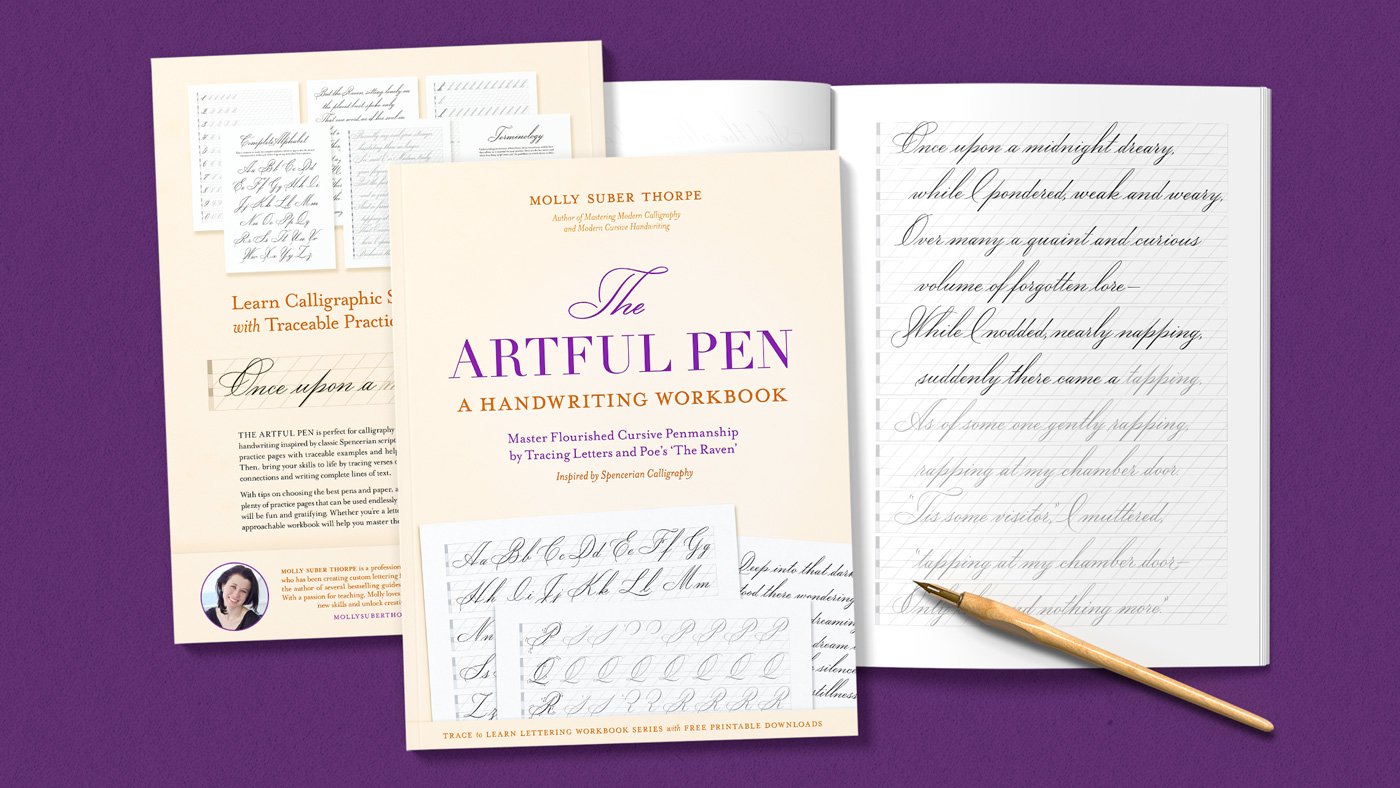 Complete Alphabet
Aa Bb Cc Dd
Ee Ff Gg Hh Ii
Jj Kk Ll Mm
Nn Oo Pp Qq
Rr Ss Tt Uu Vv
Ww Xx Yy Zz
But the Raven, sitting lonely on
the placid bust, spoke only
Terminology
Learn Calligraphic
with Traceable
Once upon a
THE ARTFUL PEN is perfect for calligraphy
handwriting inspired by classic Spencerian script
practice pages with traceable examples and
Then, bring your skills to life by tracing verses
connections and writing complete lines of text.
With tips on choosing the best pens and paper,
plenty of practice pages that can be used endlessly
will be fun and gratifying. Whether you're a
approachable workbook will help you master
MOLLY SUBER THORPE is a
who has been creating custom lettering
the author of several bestselling guides
With a passion for teaching, Molly loves
new skills and unlock
MOLLY SUBER THORPE
Author of Mastering Modern Calligraphy
and Modern Cursive Handwriting
The
ARTFUL PEN
A HANDWRITING WORKBOOK
Master Flourished Cursive Penmanship
by Tracing Letters and Poe's 'The Raven'
Inspired by Spencerian Calligraphy
Aa Bb Cc Dd Ee Ff Gg
Hh Ii Jj Kk Ll Mm
Nn
Ss
Zz
P P P P P
Q Q Q Q Q Q Q
R R R R R R
Deep into that
stood there wondering
dreaming
dream
silence
stillness
TRACE to LEARN LETTERING WORKBOOK SERIES with FREE PRINTABLE DOWNLOADS
Once upon a midnight dreary,
while I pondered, weak and weary,
Over many a quaint and curious
volume of forgotten lore—
While I nodded, nearly napping,
suddenly there came a tapping,
As of some one gently rapping,
rapping at my chamber door.
"'Tis some visitor," I muttered,
"tapping at my chamber door—
Only and nothing more."